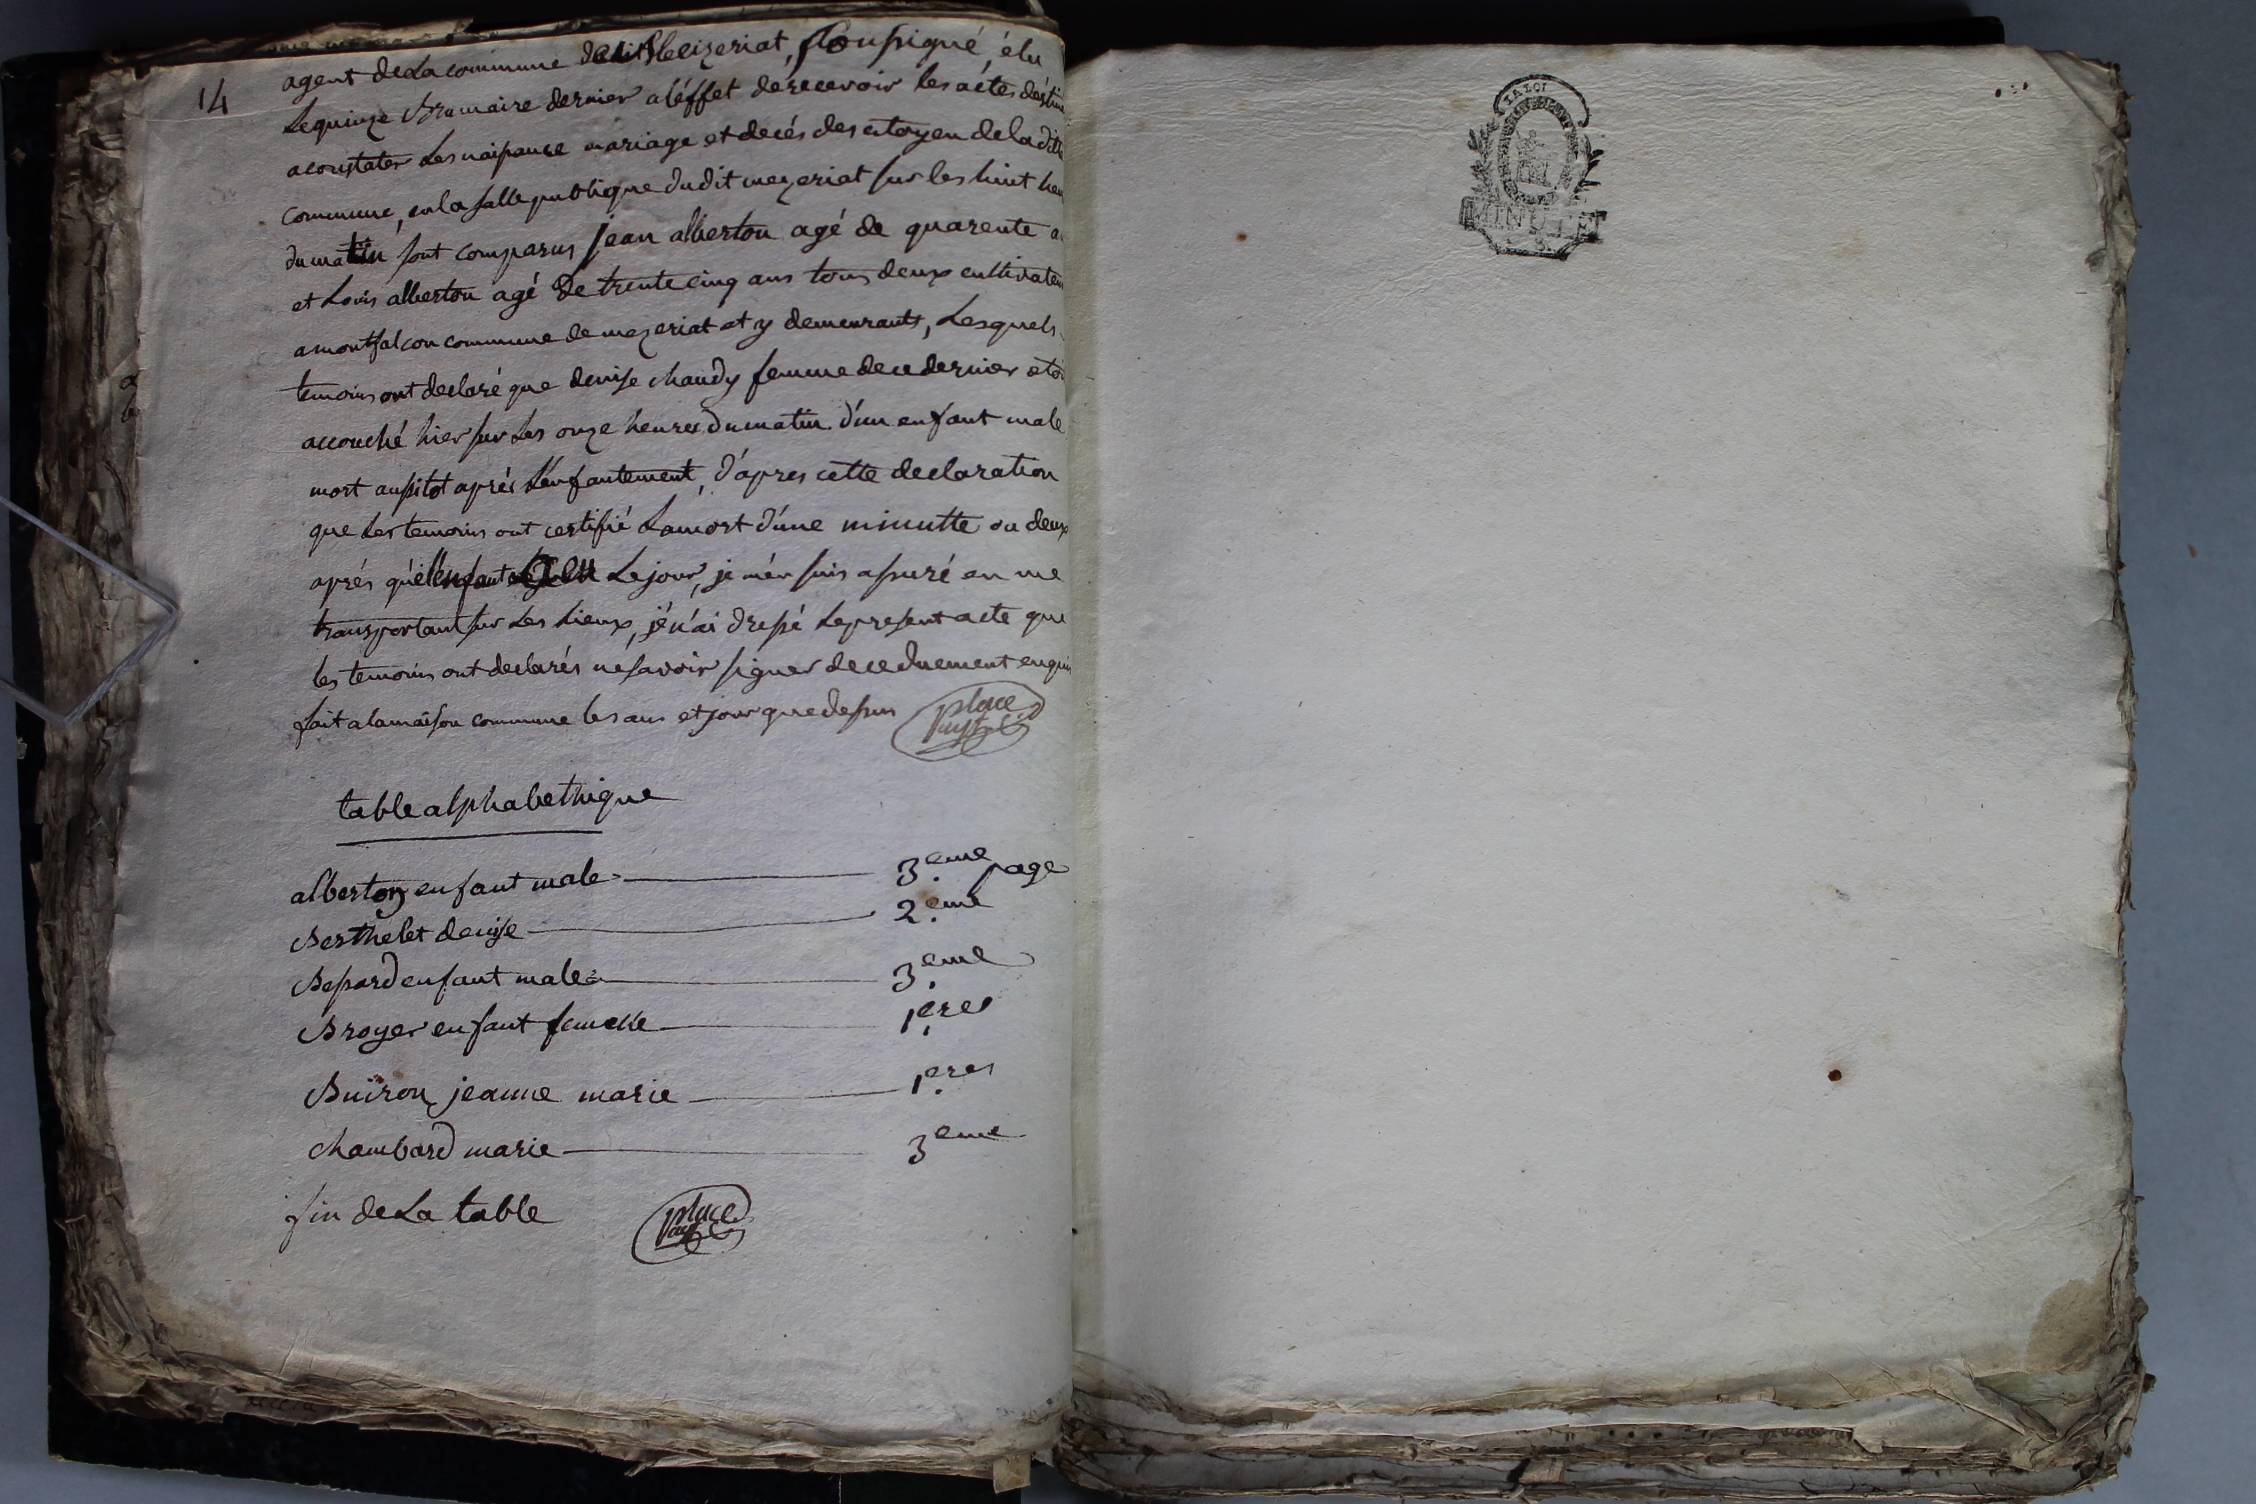 14
agent de La commune de Meizeriat, soussigné, élu
Le quinze Brumaire dernier a l'éffet de recevoir les actes déstiné
a constater Les naissance mariage et decés des citoyen de la ditte
commune, en la salle publique du dit mezeriat sur les huit heu
du matin sont comparus jean alberton agé de quarente a
et Louis alberton agé de trente cinq ans tous deux cultivateu
a montfalcon commune de mezeriat et y demeurants, Lesquels
temoins ont declaré que denise chaudy femme de ce dernier etoi
accouché hier sur Les onze heures du matin d'un enfant male
mort aussitot aprés L'enfantement, d'apres cette declaration
que Les temoins ont certifié La mort d'une minutte ou deux
aprés qu'el enfant Le jour, je m'en suis assuré en me
transportant sur Les Lieux, j'en'ai dressé Le present acte que
les temoins ont declarés ne savoir signer de ce duement enquis
fait a la maison commune les ans et jour que dessus place
table alphabethique
alberton enfant male 3.eme page
Berthelet denise 2.eme
Bessard enfant male 3.eme
Broyer enfant femelle 1.ere
Buiron jeanne marie 1.ere
chambard marie 3.eme
fin de La table place
LA LOI
MINUTE